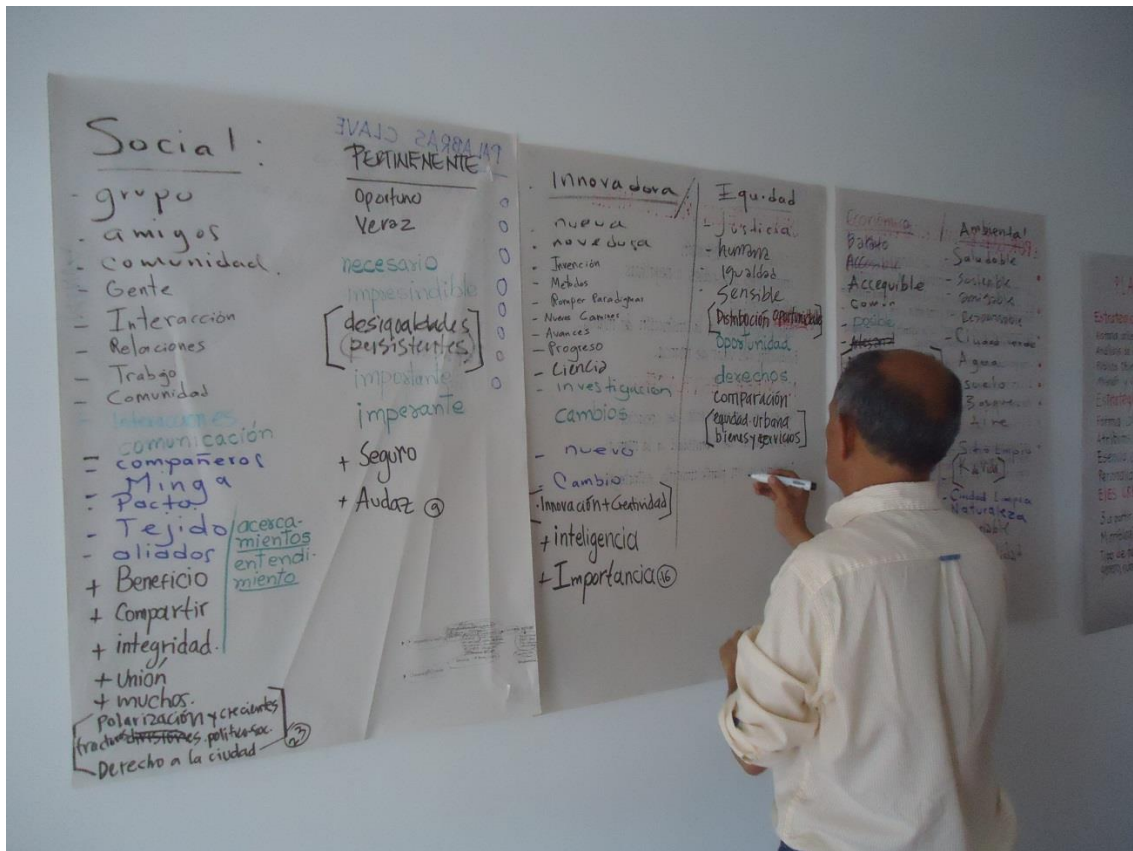 Social:
- grupo
- amigos
- comunidad.
- Gente
- Interacción
- Relaciones
- Trabajo
- Comunidad
- Interacciones
comunicación
= compañeros
- Minga
- Pacto
- Tejido
- aliados
acerca-
mientos
entendi-
miento
+ Beneficio
+ Compartir
+ integridad.
+ Unión
+ muchos.
[Polarización y crecientes
fracturas divisiones politico-soc.
Derecho a la ciudad 23
PALABRAS CLAVE
PERTINENENTE
Oportuno
Veraz
necesario
impresindible
[desigualdades
persistentes]
importante
imperante
+ Seguro
+ Audaz 9
Innovadora
- nueva
- novedosa
- Invención
- Metodos
- Romper Paradigmas
- Nuevos Caminos
- Avances
- Progreso
- Ciencia
- investigacion
cambios
- nuevo
- Cambio
[Innovación + Creatividad]
+ inteligencia
+ Importancia 16
Equidad
- Justicia.
- humana
Igualdad
Sensible
[Distribución oportunidades]
Oportunidad
derechos
comparación
[equidad-urbana
bienes y servicios]
Económica
Barato
Accesible
- Accequible
- Común
- posible
Ambiental
- Saludable
- Sostenible
- Responsable
- Ciudad verde
Agua
suelo
Bosque
Aire
- Ciudad Limpia
- Naturaleza